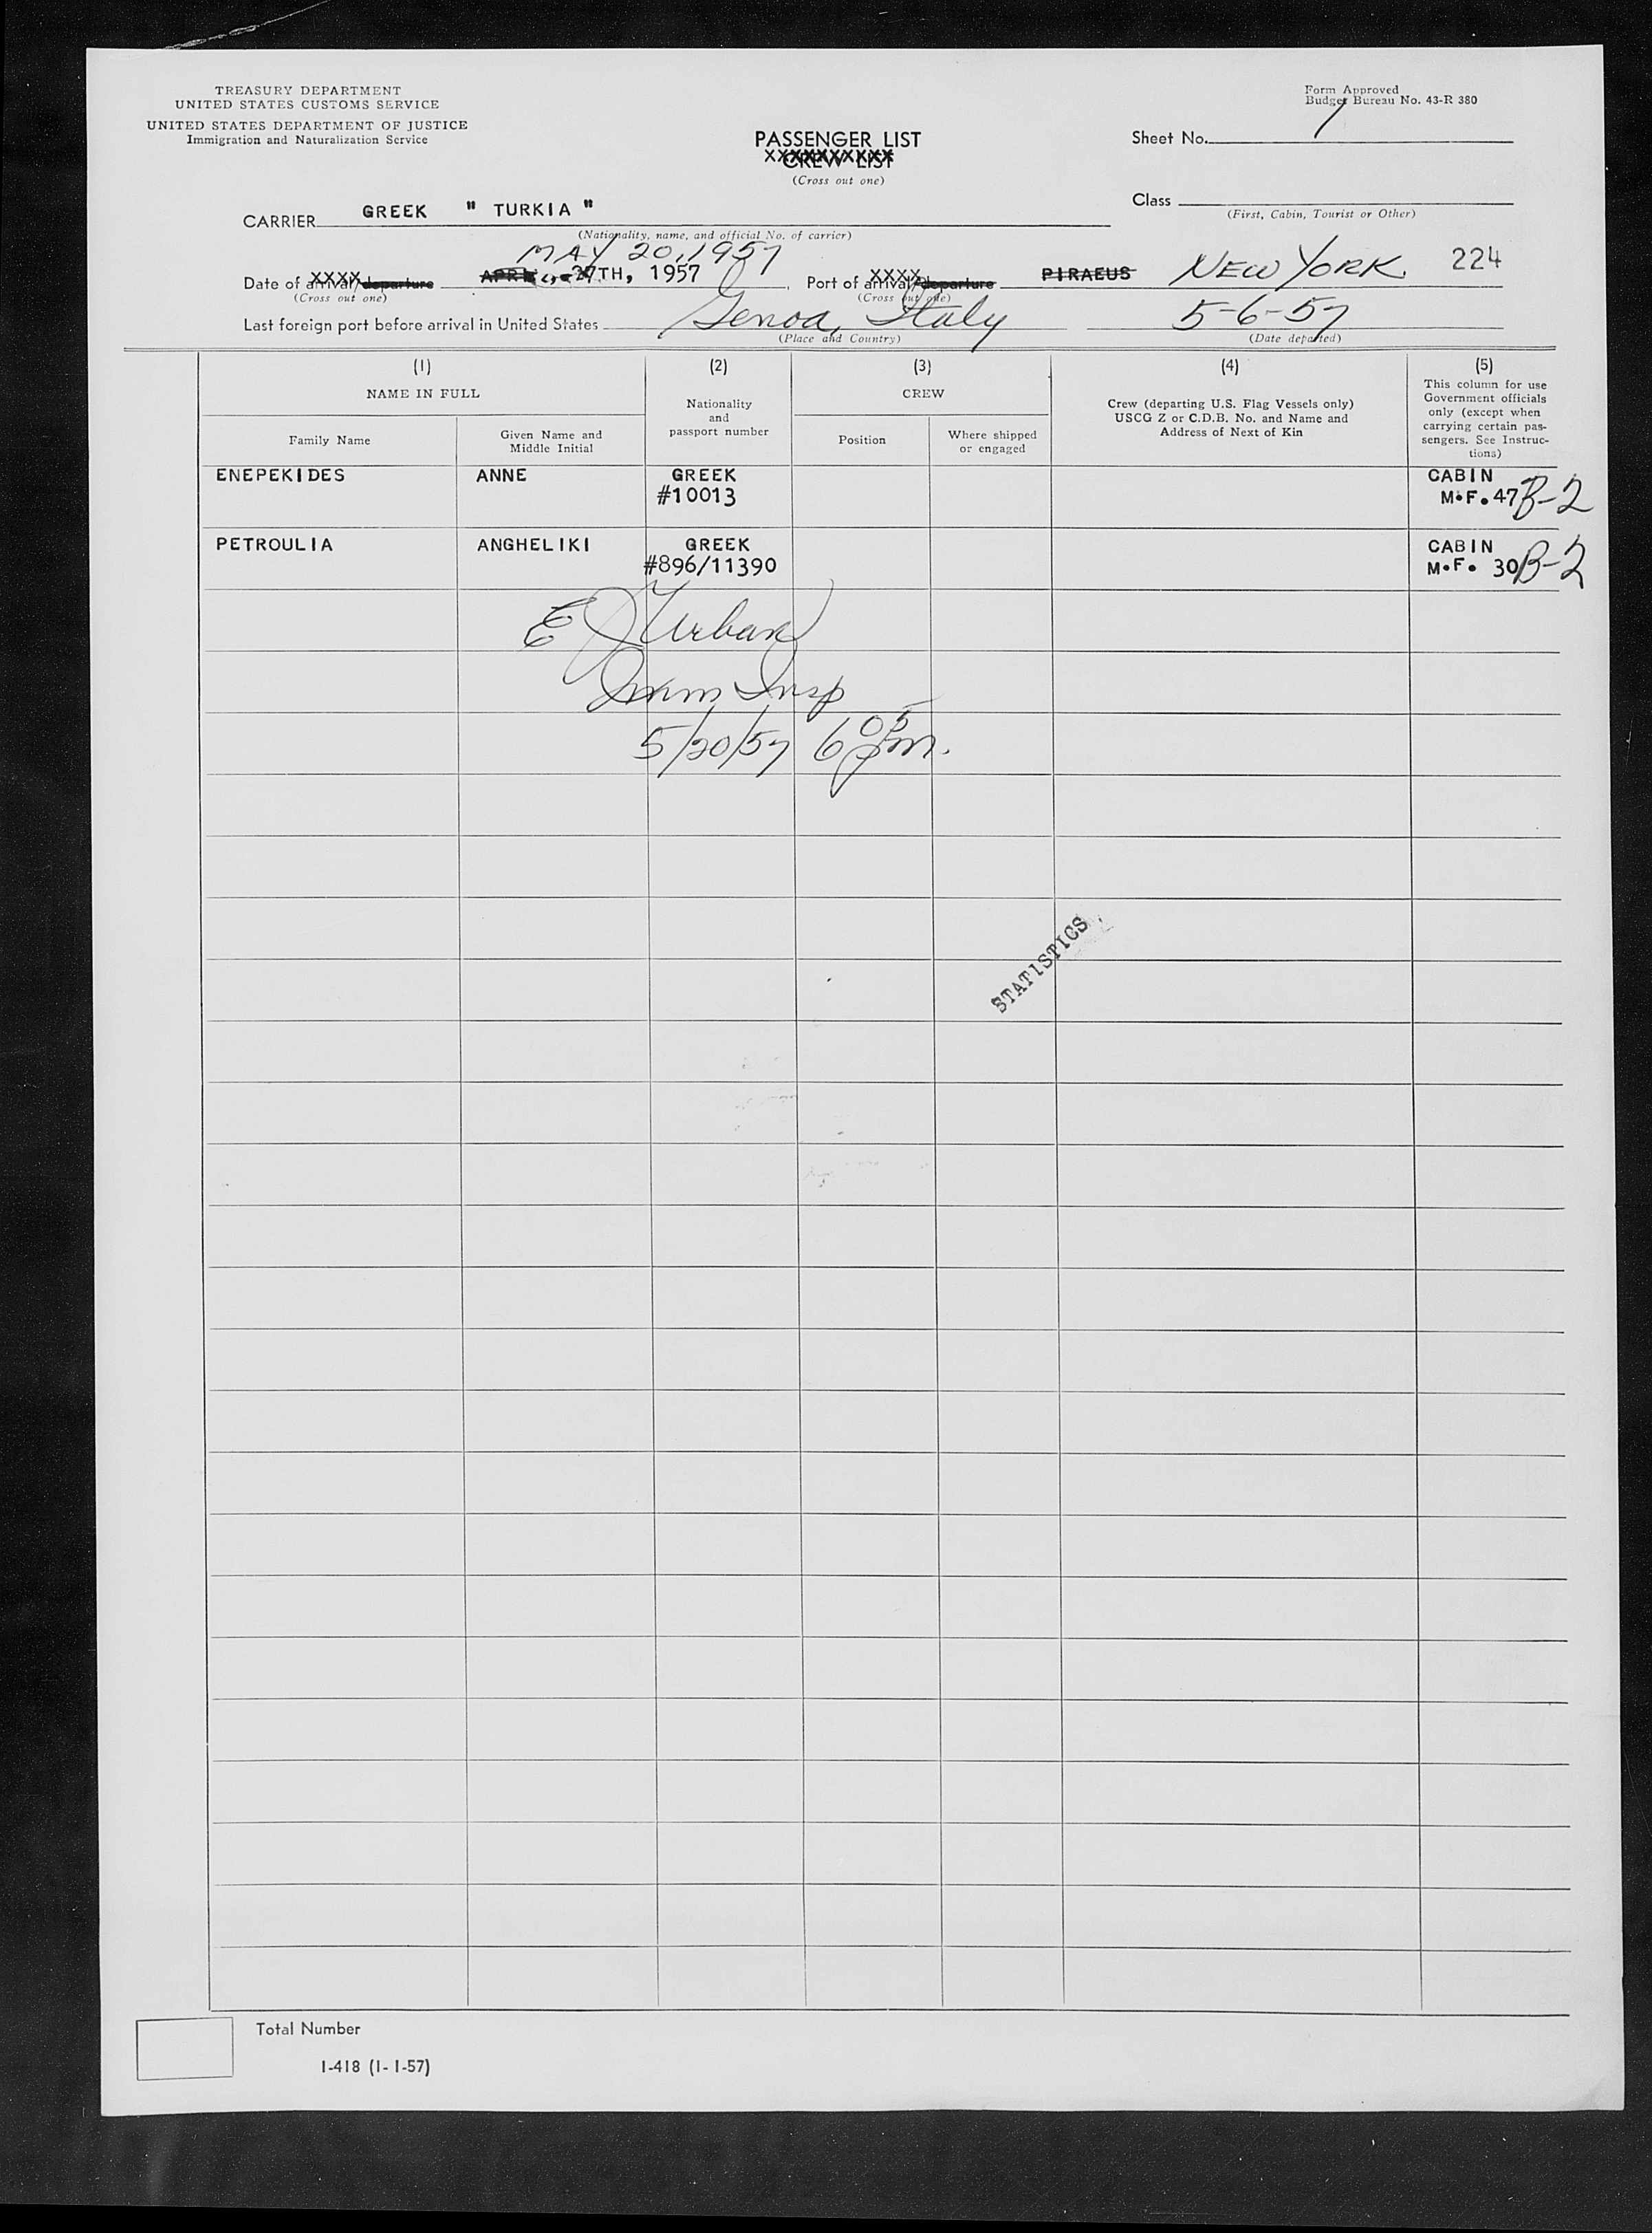 TREASURY DEPARTMENT
UNITED STATES CUSTOMS SERVICE
UNITED STATES DEPARTMENT OF JUSTICE
Immigration and Naturalization Service
Form Approved
Budget Bureau No. 43-R 380
PASSENGER LIST
CREW LIST
XXXXXXXXXX
(Cross out one)
Sheet No. 1
Class
(First, Cabin, Tourist or Other)
CARRIER GREEK " TURKIA "
(Nationality, name, and official No. of carrier)
MAY 20, 1957
Date of arrival/departure XXXX 27TH, 1957
(Cross out one)
Port of arrival/departure XXXX PIRAEUS NEW YORK 224
(Cross out one)
Last foreign port before arrival in United States Genoa, Italy 5-6-57
(Place and Country) (Date departed)
(1) (2) (3) (4) (5)
NAME IN FULL
Family Name
Given Name and
Middle Initial
Nationality
and
passport number
CREW
Position
Where shipped
or engaged
Crew (departing U.S. Flag Vessels only)
USCG Z or C.D.B. No. and Name and
Address of Next of Kin
This column for use
Government officials
only (except when
carrying certain pas-
sengers. See Instruc-
tions)
ENEPEKIDES ANNE GREEK CABIN
#10013 M.F. 47 B-2
PETROULIA ANGHELIKI GREEK CABIN
#896/11390 M.F. 30 B-2
E J Urban
Imm Insp
5/20/57 6 05 pm.
STATISTICS
Total Number
I-418 (1-1-57)